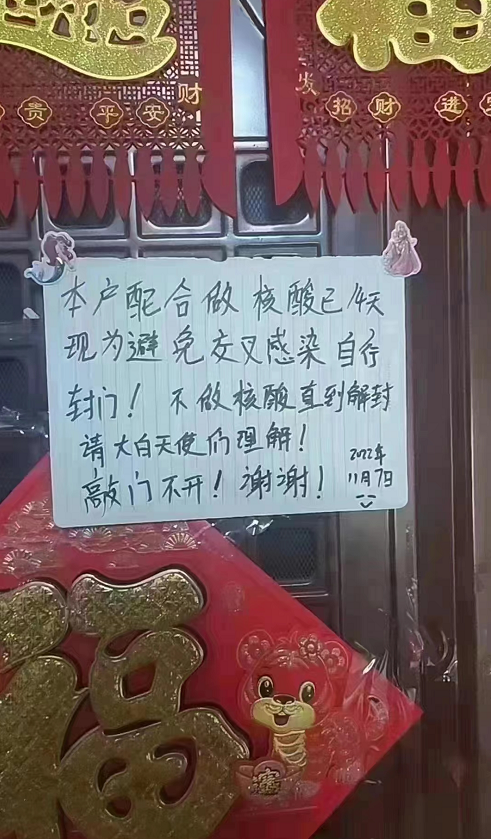 福
贵 平安 财
发 招财 进宝
本户配合做核酸已14天
现为避免交叉感染自行
封门！不做核酸直到解封
请大白天使们理解！
敲门不开！谢谢！
2022年
11月7日
福